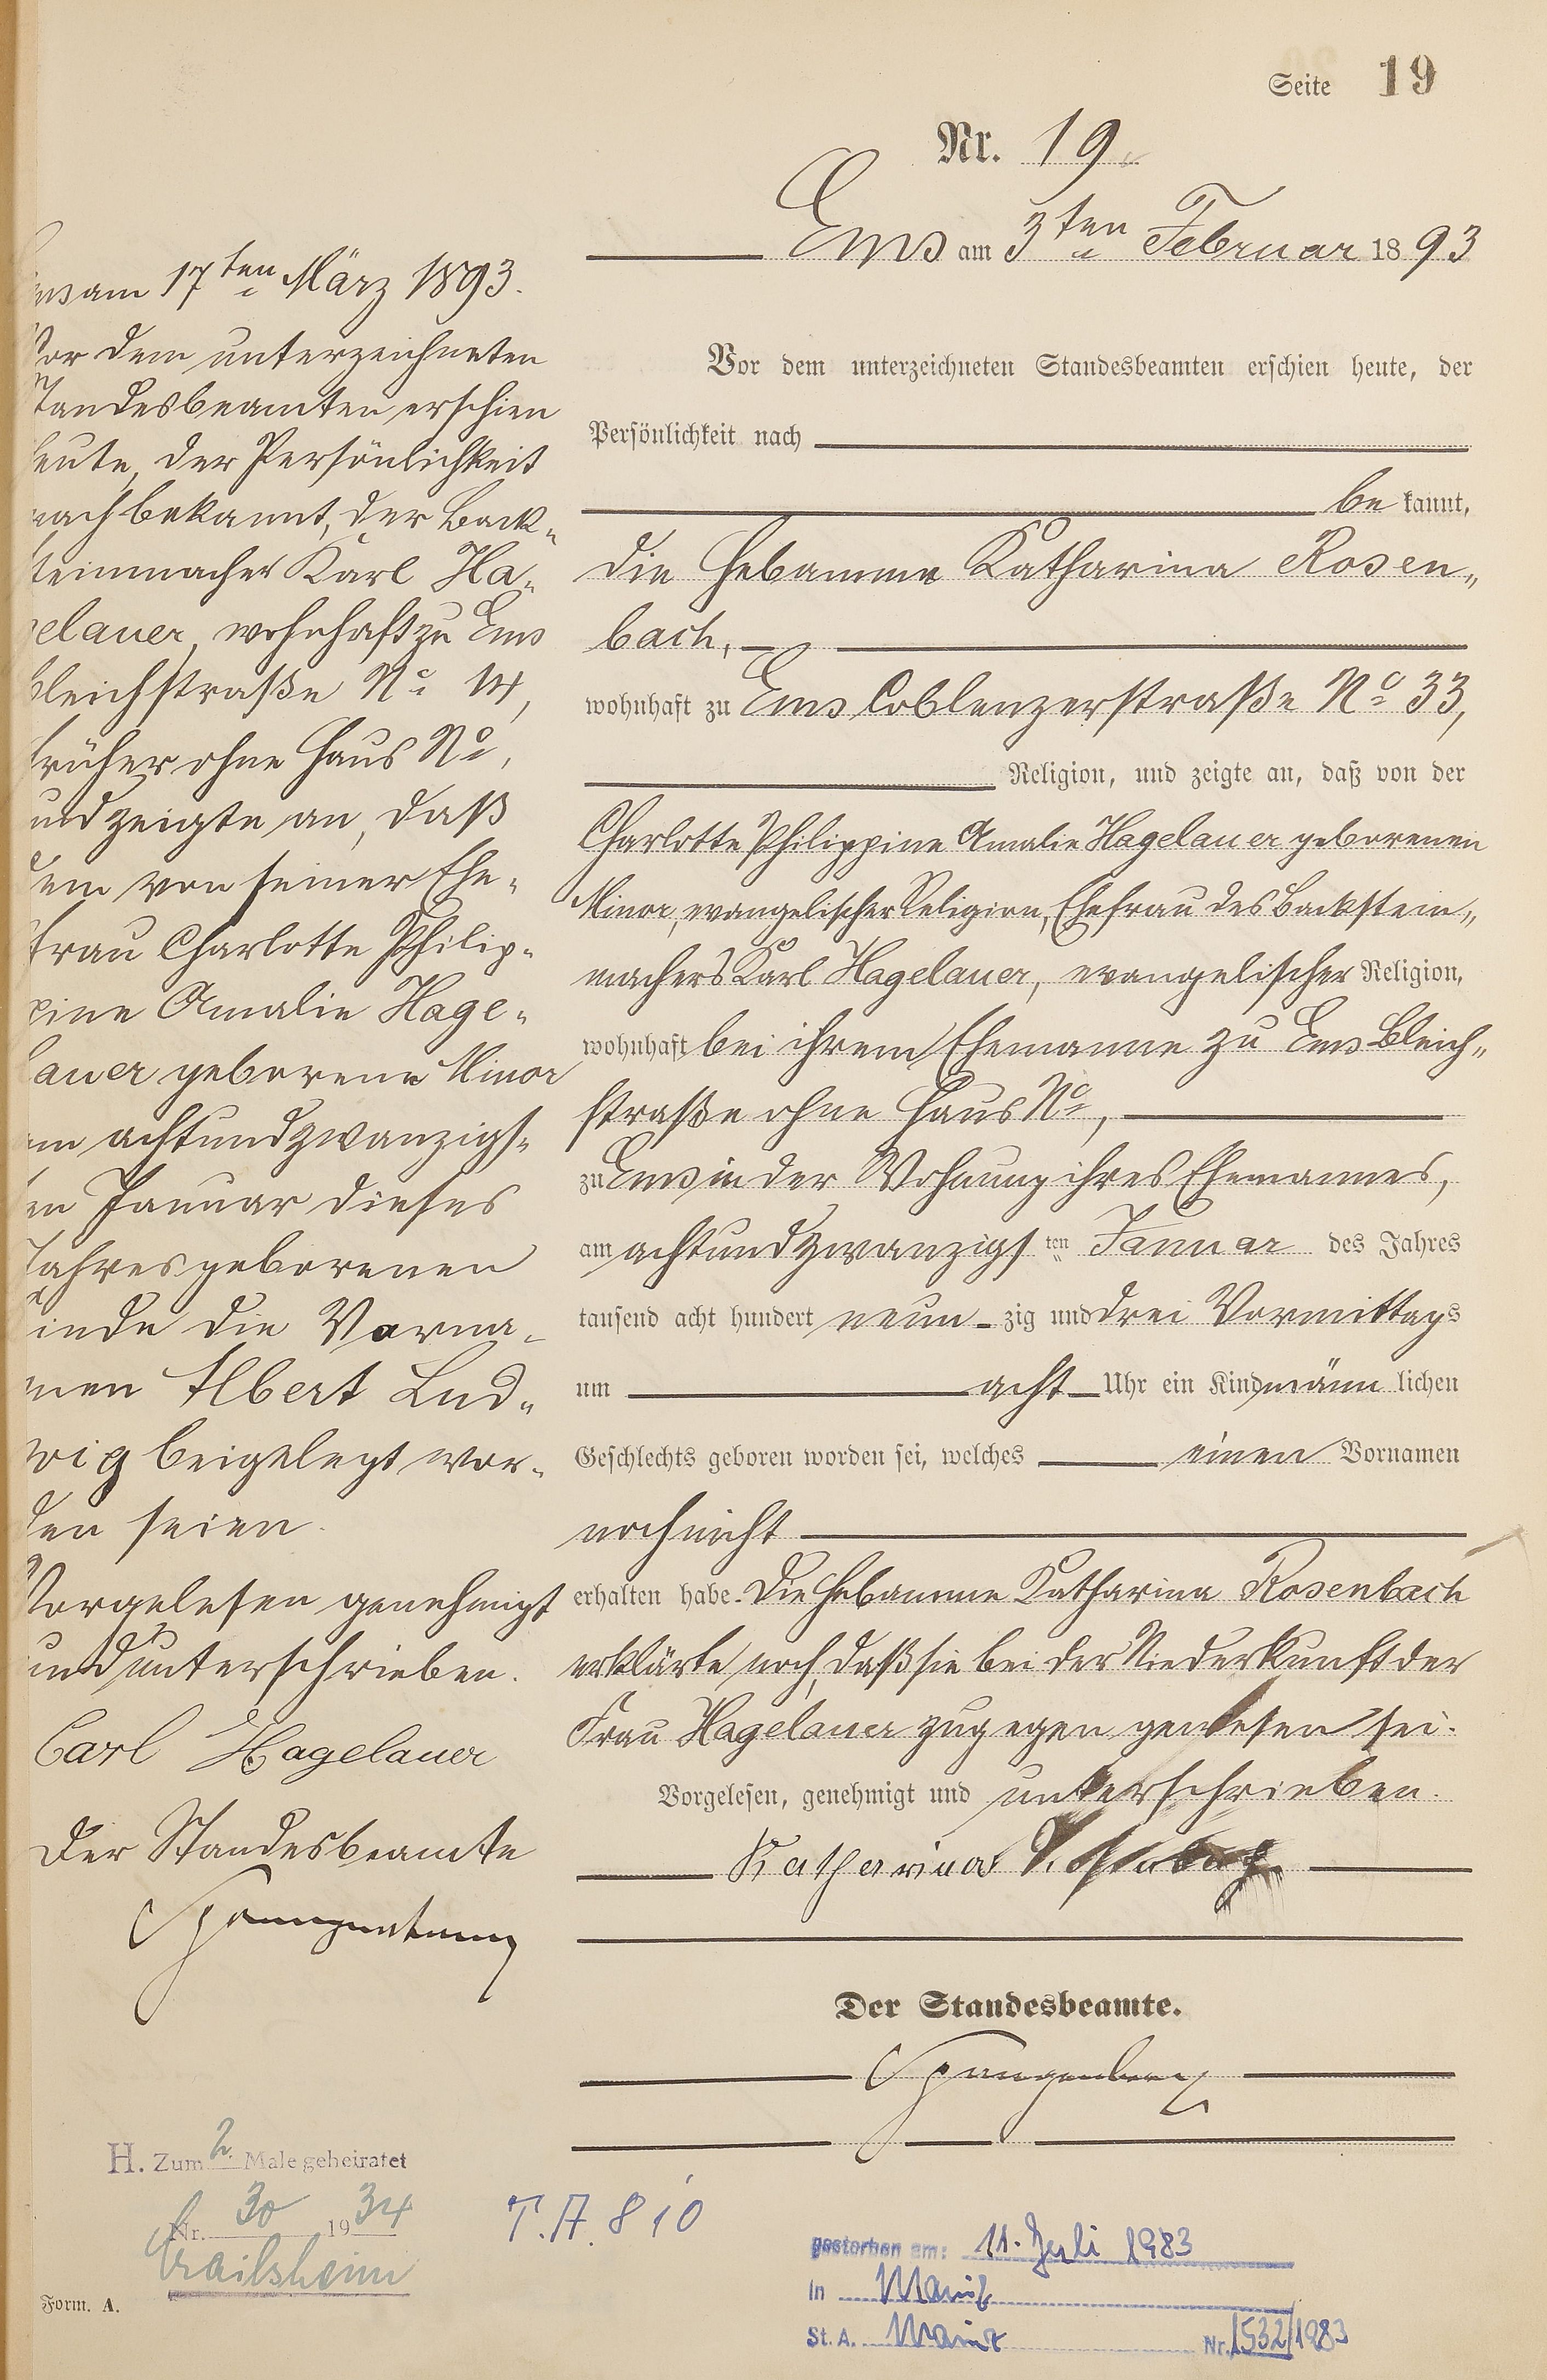 Seite 19
Nr. 19.
Ems am 3ten Februar 1893
Vor dem unterzeichneten Standesbeamten erschien heute, der
Persönlichkeit nach
be kannt,
die Hebamme Katharina Rosen„
bach,
wohnhaft zu Ems Coblenzerstraße No 33,
Religion, und zeigte an, daß von der
Charlotte Philippine Amalie Hagelauer geborenen
Minor, evangelischer Religion, Ehefrau des Backstein„
machers Karl Hagelauer, evangelischer Religion,
wohnhaft bei ihrem Ehemanne zu Ems Bleich„
straße ohne Haus No,
zu Ems in der Wohnung ihres Ehemannes,
am achtundzwanzigs ten Januar des Jahres
tausend acht hundert neun - zig und drei Vormittags
um acht Uhr ein Kind männ lichen
Geschlechts geboren worden sei, welches einen Vornamen
noch nicht
erhalten habe. Die Hebamme Katharina Rosenbach
erklärte noch, daß sie bei der Niederkunft der
Frau Hagelauer zugegen gewesen sei.
Vorgelesen, genehmigt und unterschrieben.
Katharina Rosenbach
Der Standesbeamte.
Spangenberg
Ems am 17ten März 1893.
Vor dem unterzeichneten
Standesbeamten erschien
heute, der Persönlichkeit
nach bekannt, der Back„
steinmacher Karl Ha„
gelauer, wohnhaft zu Ems
Bleichstraße No 14,
früher ohne Haus No,
und zeigte an, daß
dem von seiner Ehe„
frau Charlotte Philip„
pine Amalie Hage„
lauer geborene Minor
am achtundzwanzigs„
ten Januar dieses
Jahres geborenen
Kinde die Vorna„
men Albert Lud„
wig beigelegt wor„
den seien.
Vorgelesen genehmigt
und unterschrieben.
Carl Hagelauer
Der Standesbeamte
H. Zum 2. Male geheiratet
Nr. 30 1934
Crailsheim
Form. A.
T. A. 810
gestorben am: 11. Juli 1983
in Mainz
St. A. Mainz Nr. 1532/1983